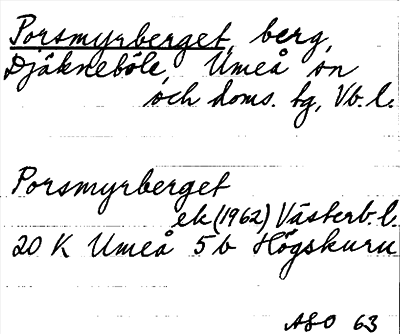 Porsmyrberget, berg,
Djäkneböle, Umeå sn
och doms. tg, Vb. l.
Porsmyrberget
ek (1962) Västerb. l.
20 K Umeå 5b Högskuru
ASO 63